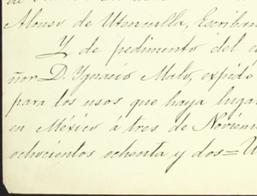 Alonso de Utenculla, Escriban
Y de pedimento del e
ñor D. Ygnacio Malo, expidó
para los usos que haya lugar
en México á tres de Noviem
ochocientos ochenta y dos=